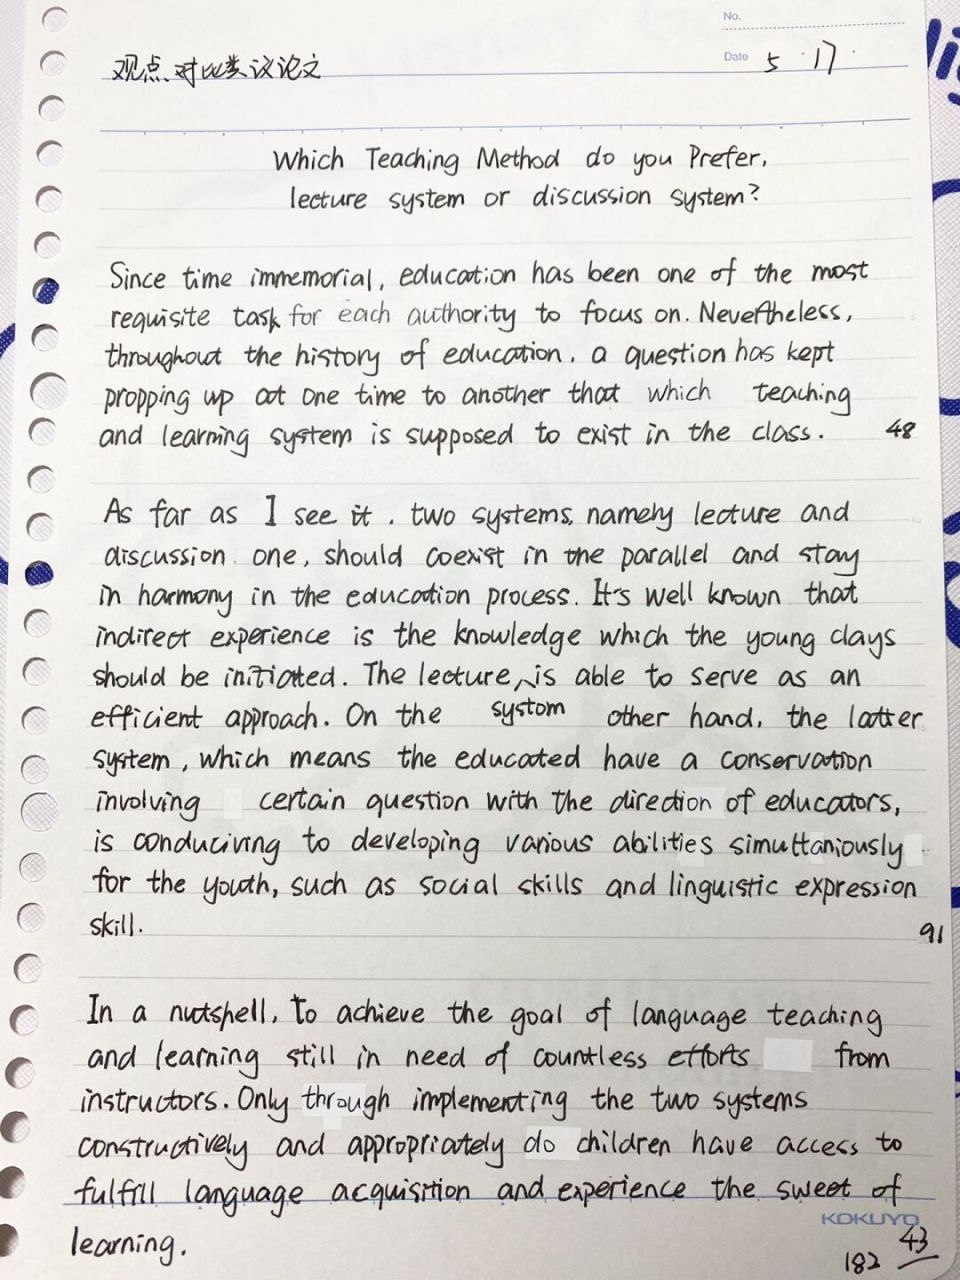 No.
观点对比类议论文
Date 5 · 17 ·
Which Teaching Method do you Prefer,
lecture system or discussion system?
Since time immemorial, education has been one of the most
requisite task for each authority to focus on. Nevertheless,
throughout the history of education, a question has kept
propping up at one time to another that which teaching
and learning system is supposed to exist in the class. 48
As far as I see it, two systems, namely lecture and
discussion one, should coexist in the parallel and stay
in harmony in the education process. It's well known that
indirect experience is the knowledge which the young clays
should be initiated. The lecture is able to serve as an
efficient approach. On the system other hand, the latter
system, which means the educated have a conservation
involving certain question with the direction of educators,
is conduciving to developing various abilities simultaniously
for the youth, such as social skills and linguistic expression
skill.
91
In a nutshell, to achieve the goal of language teaching
and learning still in need of countless efforts from
instructors. Only through implementing the two systems
constructively and appropriately do children have access to
fulfill language acquisition and experience the sweet of
KOKUYO
learning. 182 43